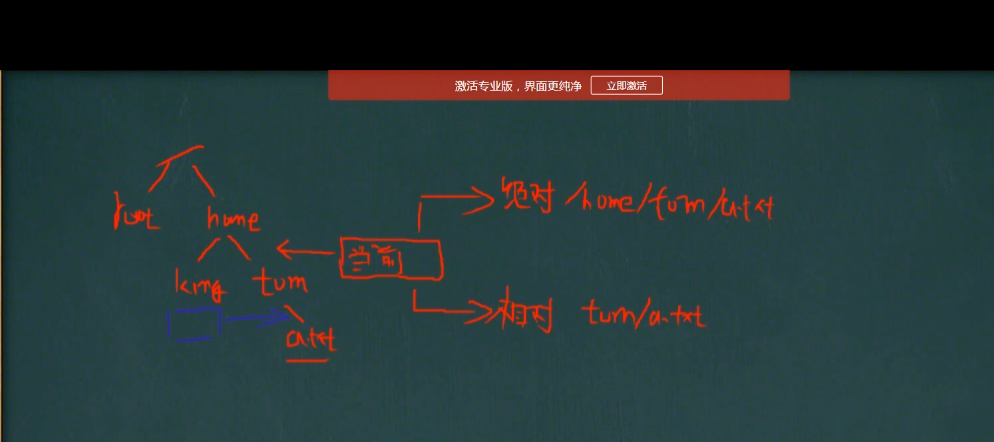 激活专业版，界面更纯净 立即激活
/
root home
king tom
a.txt
当前
绝对 /home/tom/a.txt
相对 tom/a.txt